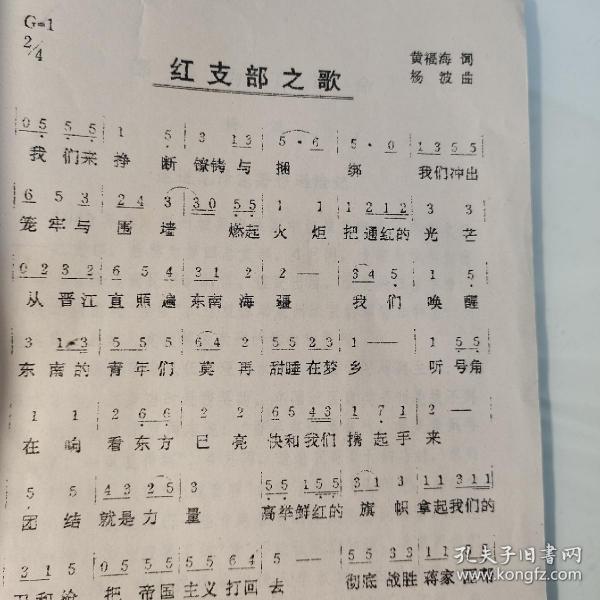 G=1
2/4
红支部之歌
黄福海 词
杨波 曲
0 5 5 5 1 5 3 1 3 5 · 6 5 · 0 1 3 5 5
我们来挣断镣铐与捆绑 我们冲出
6 5 3 2 4 3 3 0 5 5 1 1 1 2 1 2 3 3
笼牢与围墙 燃起火炬把通红的光芒
0 2 3 2 6 5 4 3 1 2 2 — 3 4 5 1 5
从晋江直照遍东南海疆 我们唤醒
3 1 3 5 5 5 6 4 2 5 5 2 3 1 — 1 5 5
东南的青年们莫再甜睡在梦乡 听号角
1 1 2 6 6 2 2 6 5 4 3 1 7 1 2 —
在响看东方已亮快和我们携起手来
5 5 4 3 2 5 3 5 5 1 5 5 3 1 3 1 1 3 1 1
团结就是力量 高举鲜红的旗帜拿起我们的
5 5 5 5 6 4 5 — 5 5 3 3
把帝国主义打回去 彻底战胜蒋家
孔夫子旧书网
www.kongfz.com